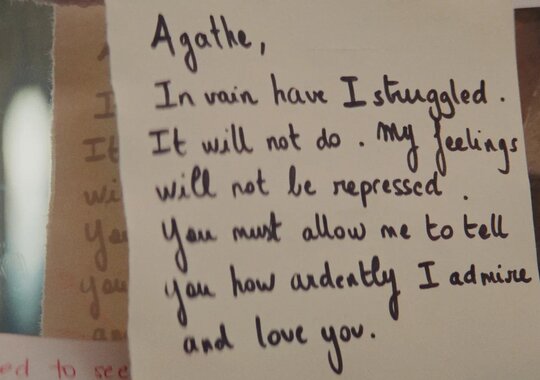 Agathe,
In vain have I struggled.
It will not do. My feelings
will not be repressed.
You must allow me to tell
you how ardently I admire
and love you.
ed to see